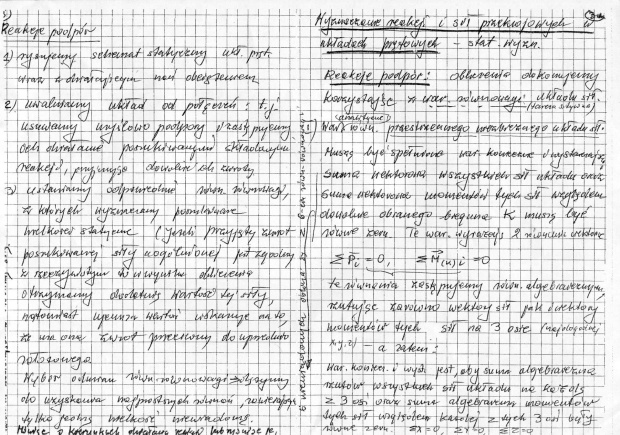 Reakcje podpór
1) rysujemy schemat statyczny ukł. pręt.
wraz z działającym nań obciążeniem
2) uwalniamy układ od połączeń: tzn.
usuwamy myślowo podpory i zastępujemy
ich działanie poszukiwanymi składowymi
reakcji, przyjmując dowolnie ich zwroty
3) ustawiamy odpowiednie równ. równowagi,
z których wyznaczamy poszukiwane
wielkości statyczne (jeżeli przyjęty zwrot
poszukiwanej siły uogólnionej jest zgodny
z rzeczywistym to w wyniku obliczenia
otrzymamy dodatnią wartość tej siły,
natomiast ujemna wartość wskazuje na to,
że ma ona zwrot przeciwny do uprzednio
założonego.
Wybór odmian równ. równowagi
do uzyskania najprostszych równań zawierających
tylko jedną wielkość niewiadomą.
Wyznaczanie reakcji i sił przekrojowych w
układach prętowych - stat. wyzn.
Reakcje podpór: obliczenia dokonujemy
korzystając z war. równowagi układu sił.
Warunki przestrzennego dowolnego układu sił.
Muszą być spełnione war. konieczne i wystarczające
suma wektorowa wszystkich sił układu oraz
suma wektorowa momentów tych sił względem
dowolnie obranego bieguna K muszą być
równe zero. Te war. wyrażają 2 równania wektorowe
ΣP̄i = 0, ΣM̄(K)i = 0
te równania zastępujemy równ. algebraicznymi,
rzutując zarówno wektory sił jak i wektory
momentów tych sił na 3 osie
x,y,z) - a zatem:
War. koniecz. i wyst. jest, aby suma algebraiczna
rzutów wszystkich sił układu na każdą
z 3 osi oraz suma algebraiczna momentów
tych sił względem każdej z tych 3 osi były
równe zero: Σx=0, Σy=0, Σz=0